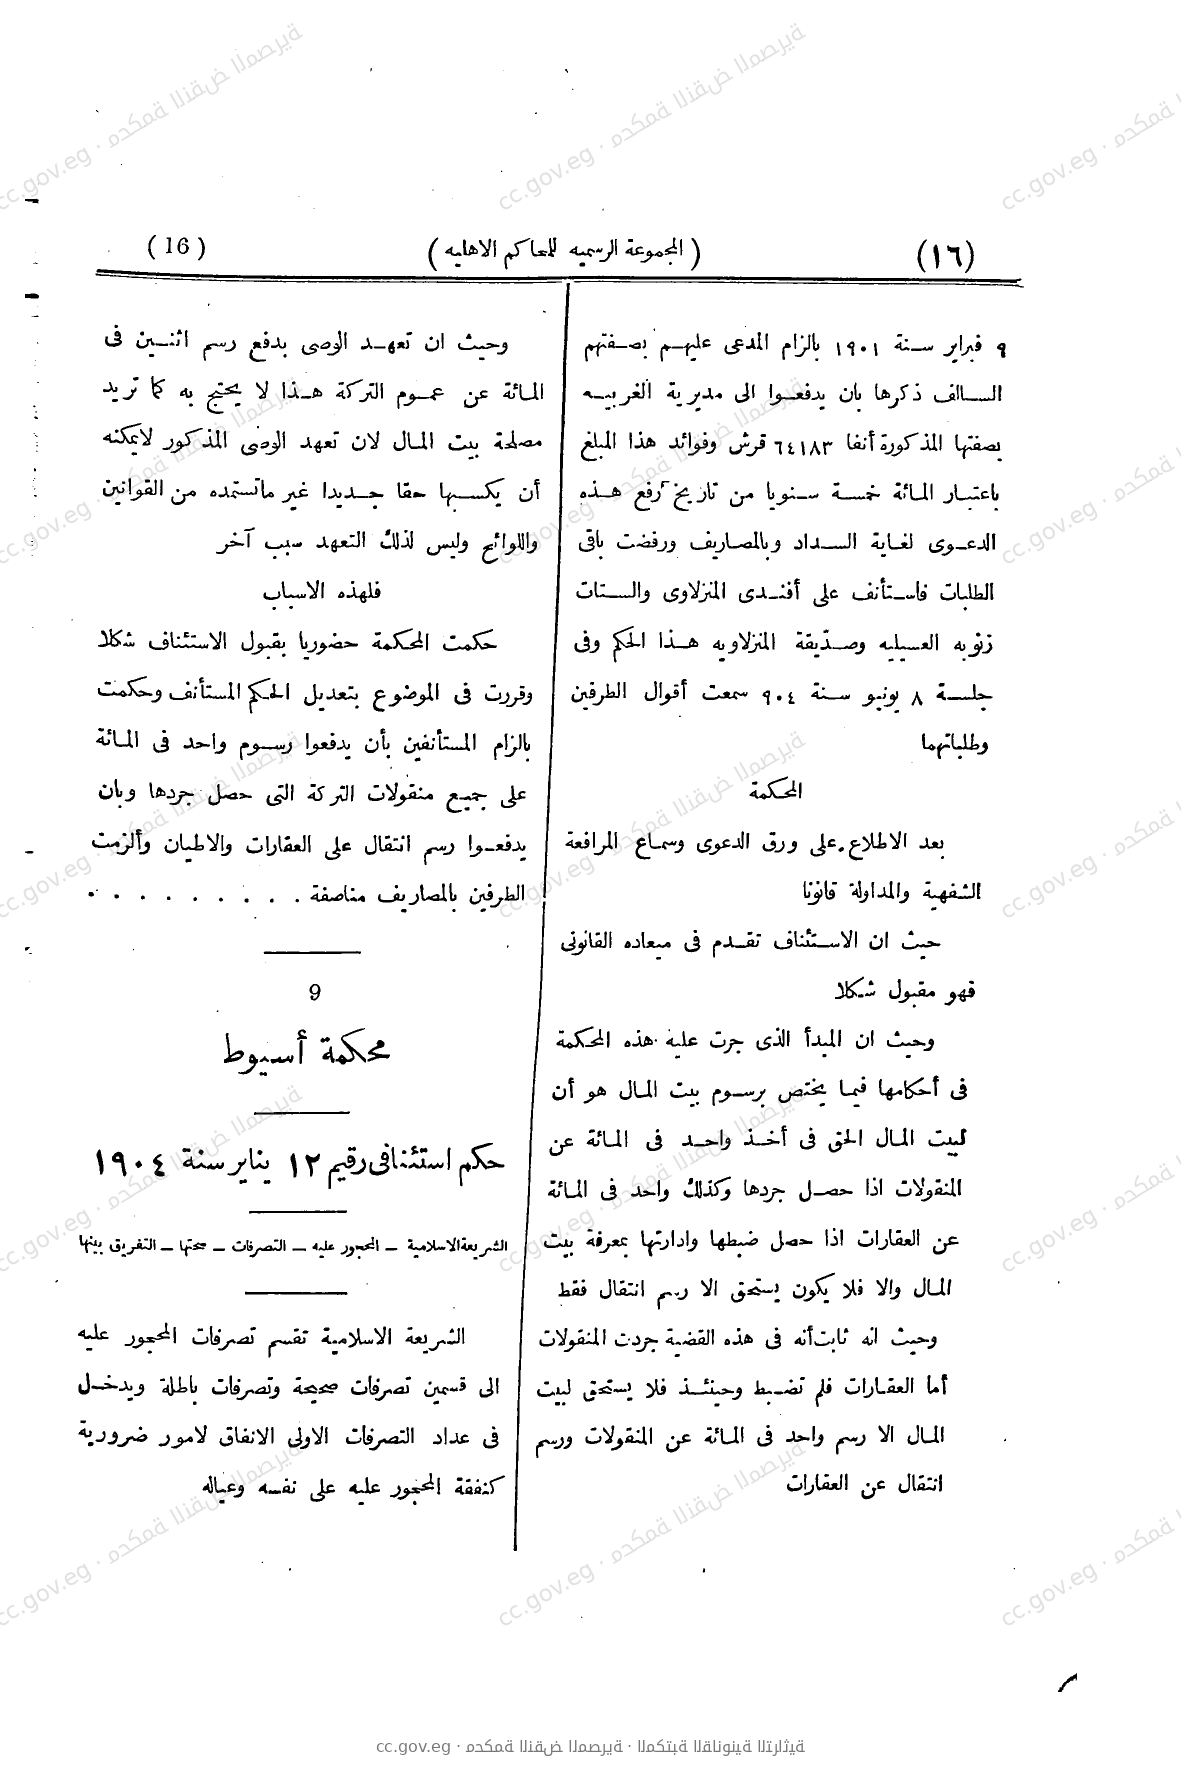 (١٦)
( المجموعة الرسميه للمحاكم الاهليه )
( 16 )
٩ فبراير سنة ١٩٠١ بالزام المدعى عليهم بصفتهم
السالف ذكرها بان يدفعوا الى مديرية الغربيه
بصفتها المذكورة أنفا ٦٤١٨٣ قرش وفوائد هذا المبلغ
باعتبار المائة خمسة سنويا من تاريخ رفع هذه
الدعوى لغاية السداد وبالمصاريف ورفضت باقى
الطلبات فاستأنف على أفندى المنزلاوى والستات
زنوبه العسيليه وصديقة المنزلاويه هذا الحكم وفى
جلسة ٨ يونيو سنة ٩٠٤ سمعت أقوال الطرفين
وطلباتهما
المحكمة
بعد الاطلاع على ورق الدعوى وسماع المرافعة
الشفهية والمداولة قانونا
حيث ان الاستئناف تقدم فى ميعاده القانونى
فهو مقبول شكلا
وحيث ان المبدأ الذى جرت عليه هذه المحكمة
فى أحكامها فيما يختص برسوم بيت المال هو أن
لبيت المال الحق فى أخذ واحد فى المائة عن
المنقولات اذا حصل جردها وكذلك واحد فى المائة
عن العقارات اذا حصل ضبطها وادارتها بمعرفة بيت
المال والا فلا يكون يستحق الا رسم انتقال فقط
وحيث انه ثابت أنه فى هذه القضية جردت المنقولات
أما العقارات فلم تضبط وحينئذ فلا يستحق لبيت
المال الا رسم واحد فى المائة عن المنقولات ورسم
انتقال عن العقارات
وحيث ان تعهد الوصى بدفع رسم اثنين فى
المائة عن عموم التركة هذا لا يحتج به كما تريد
مصلحة بيت المال لان تعهد الوصى المذكور لايمكنه
أن يكسبها حقا جديدا غير ماتستمده من القوانين
واللوائح وليس لذلك التعهد سبب آخر
فلهذه الاسباب
حكمت المحكمة حضوريا بقبول الاستئناف شكلا
وقررت فى الموضوع بتعديل الحكم المستأنف وحكمت
بالزام المستأنفين بأن يدفعوا رسوم واحد فى المائة
على جميع منقولات التركة التى حصل جردها وبان
يدفعوا رسم انتقال على العقارات والاطيان وألزمت
الطرفين بالمصاريف مناصفة . . . . . . . . .
9
محكمة أسيوط
حكم استئنافى رقيم ١٢ يناير سنة ١٩٠٤
الشريعة الاسلامية – المحجور عليه – التصرفات – صحتها – التفريق بينها
الشريعة الاسلامية تقسم تصرفات المحجور عليه
الى قسمين تصرفات صحيحة وتصرفات باطلة ويدخل
فى عداد التصرفات الاولى الانفاق لامور ضرورية
كنفقة المحجور عليه على نفسه وعياله
cc.gov.eg · محكمة النقض المصرية · المكتبة القانونية التراثية